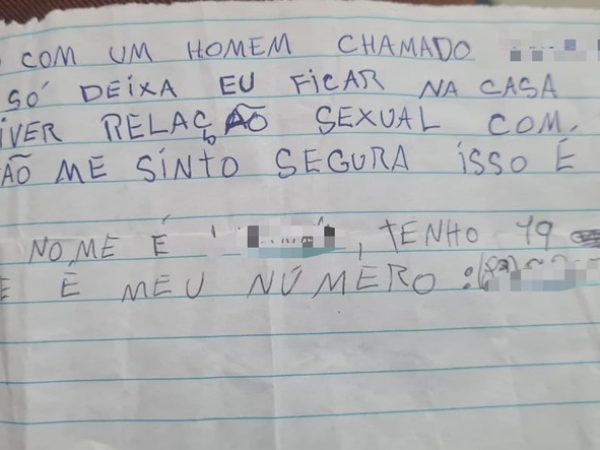 COM UM HOMEM CHAMADO
SÓ DEIXA EU FICAR NA CASA
IVER RELAÇÃO SEXUAL COM.
ÃO ME SINTO SEGURA ISSO É
NOME É , TENHO 19
E É MEU NÚMERO :